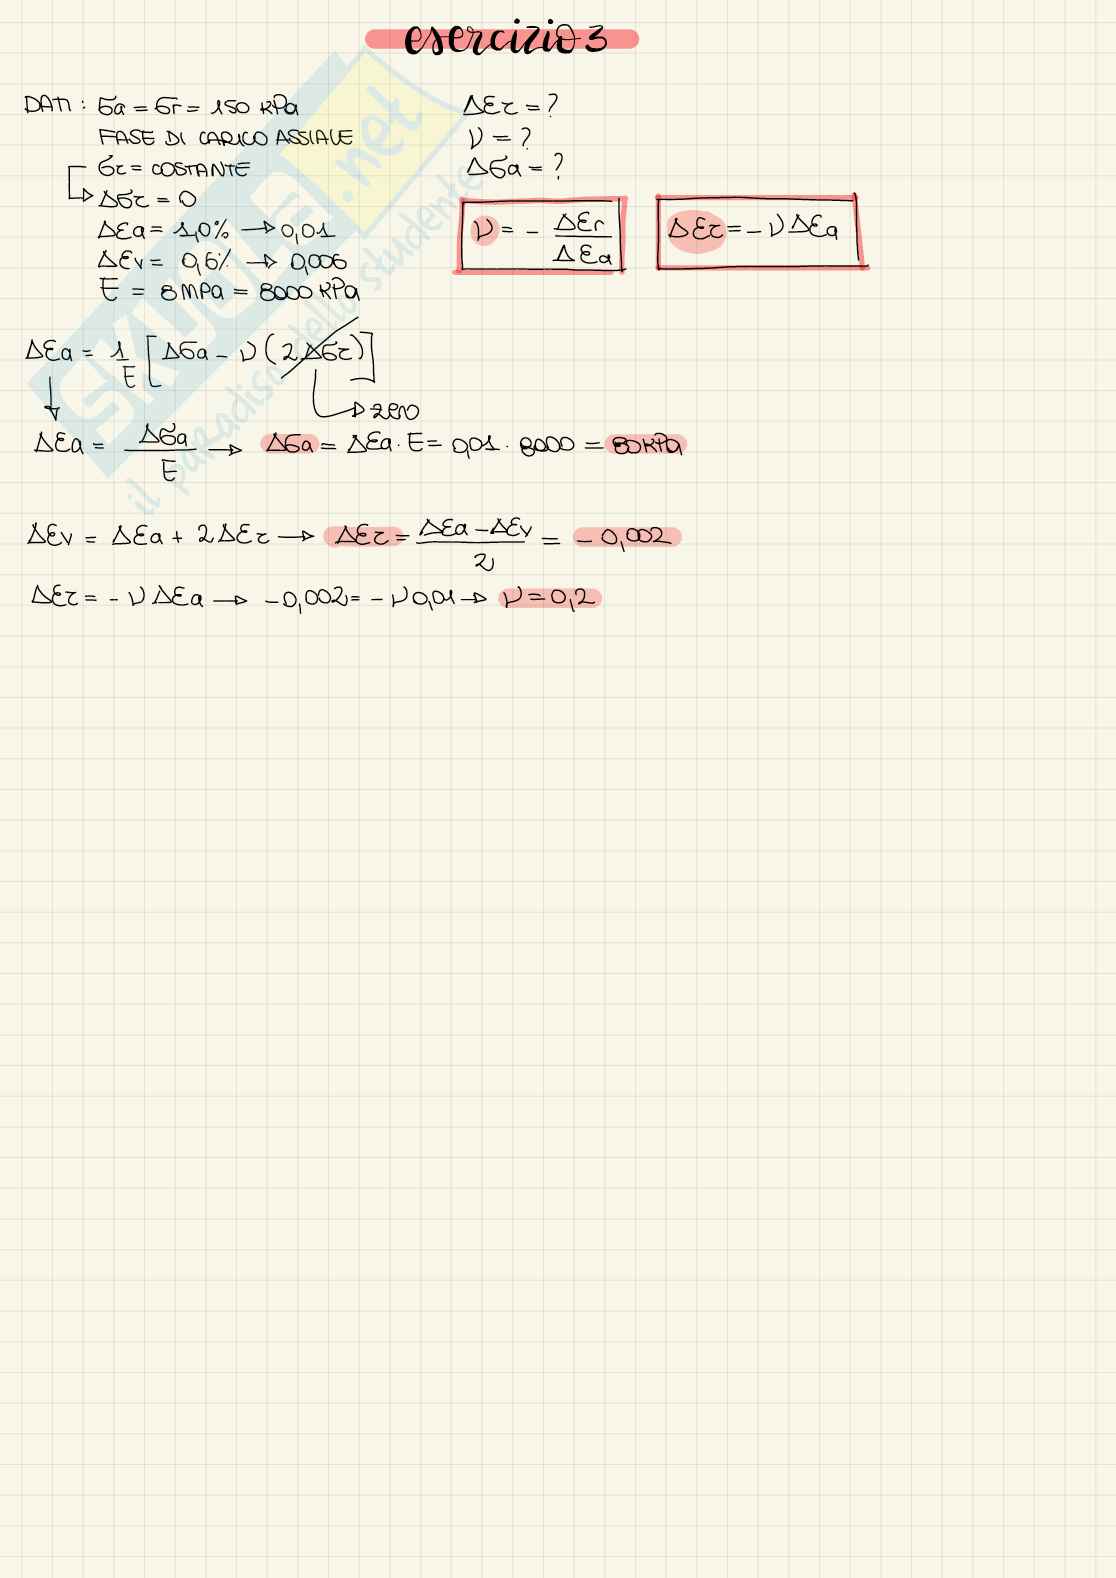 esercizio 3
DATI : σa = σr = 150 kPa
FASE DI CARICO ASSIALE
σr = COSTANTE
Δσr = 0
Δεa = 1,0% → 0,01
Δεv = 0,6% → 0,006
E = 8 MPa = 8000 kPa
Δεr = ?
ν = ?
Δσa = ?
ν = - Δεr / Δεa
Δεr = - ν Δεa
Δεa = 1/E [Δσa - ν (2Δσr)]
→ zero
Δεa = Δσa / E → Δσa = Δεa · E = 0,01 · 8000 = 80 kPa
Δεv = Δεa + 2Δεr → Δεr = Δεa - Δεv / 2 = - 0,002
Δεr = - ν Δεa → -0,002 = - ν 0,01 → ν = 0,2
SKUOLA.net
il paradiso dello studente